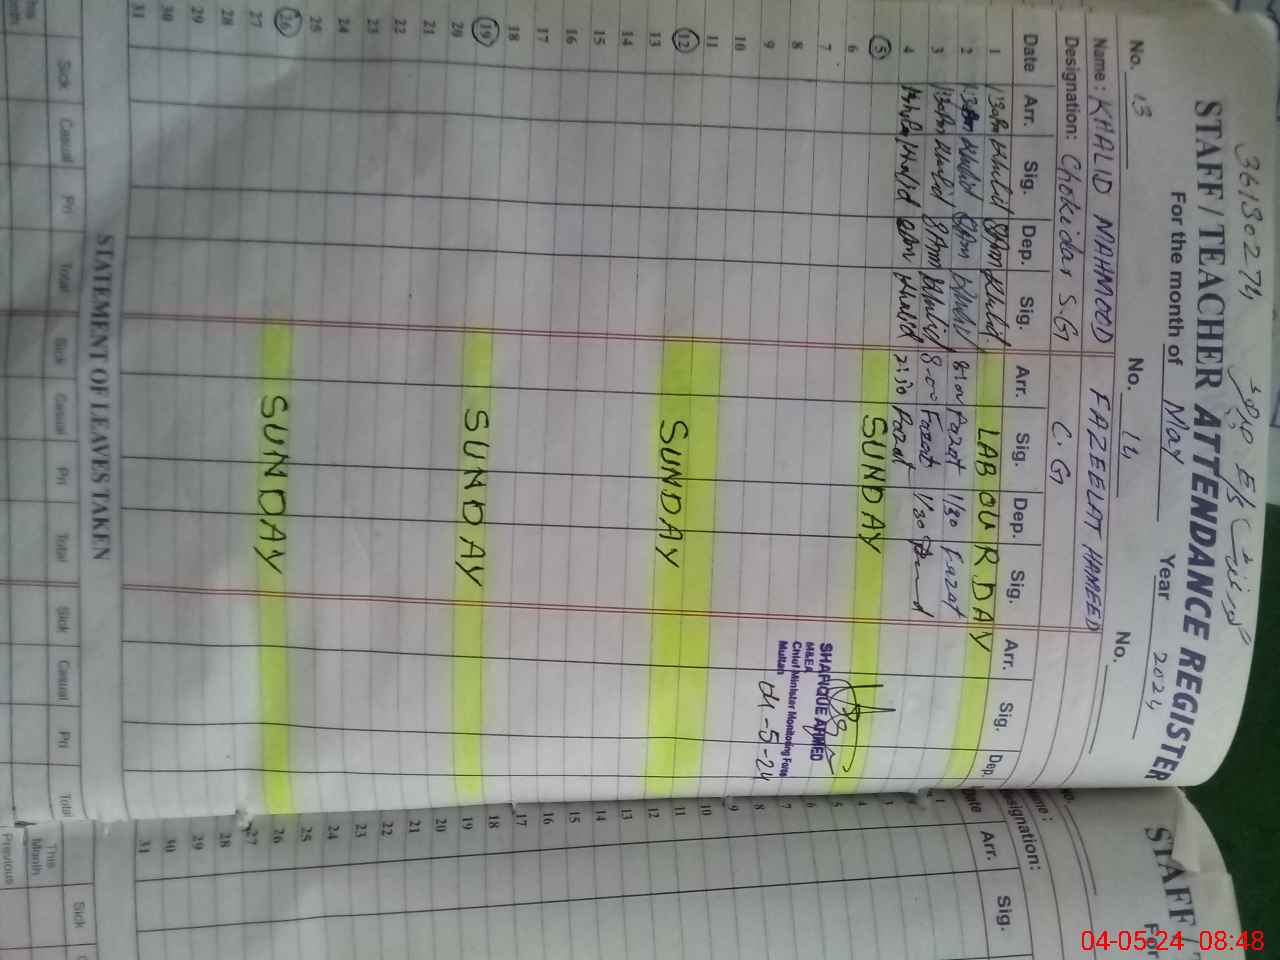 36130274
STAFF / TEACHER ATTENDANCE REGISTER
For the month of May Year 2024
No. 13 No. 14 No.
Name: KHALID MAHMOOD FAZEELAT HAMEED
Designation: Chokidar S.G C.G
Date Arr. Sig. Dep. Sig. Arr. Sig. Dep. Sig. Arr. Sig. Dep.
1 Khalid 8Am Khalid LABOUR DAY
2 Khalid 8Am Khalid 8:00 Fazat 1/30 Fazat
3 Khalid 8Am Khalid 8-00 Fazat 1/30
4 Khalid Khalid 2:30 Fazat
5 SUNDAY
6
7
8
9
10
11
12 SUNDAY
13
14
15
16
17
18
19 SUNDAY
20
21
22
23
24
25
26 SUNDAY
27
28
29
30
31
SHAFIQUE AHMED
M&EA
Chief Minister Monitoring Force
Multan
04-5-24
STATEMENT OF LEAVES TAKEN
Sick Casual Pri Total Sick Casual Pri Total Sick Casual Pri Total
STAFF / T
For
Designation:
Date Arr. Sig.
1
3
4
5
6
7
8
9
10
11
12
13
14
15
16
17
18
19
20
21
22
23
24
25
26
27
28
29
30
31
Sick
This Month
Previous
04-05-24 08:48